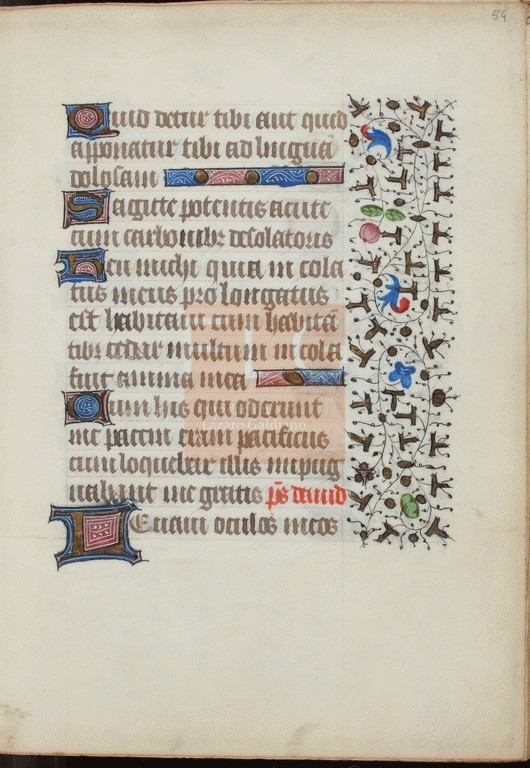 54
Quid detur tibi aut quid
apponatur tibi ad linguā
dolosam
Sagitte potentis acute
cum carbonibꝫ desolatoriis
Heu michi quia in cola
tus meus prolongatus
est habitaui cum habitā
tibꝫ cedar multum incola
fuit anima mea
Cum hiis qui oderunt
me pacem eram pacificus
cum loquebar illis impug
nabant me gratis ps dauid
Leuaui oculos meos
Lázaro Galdiano